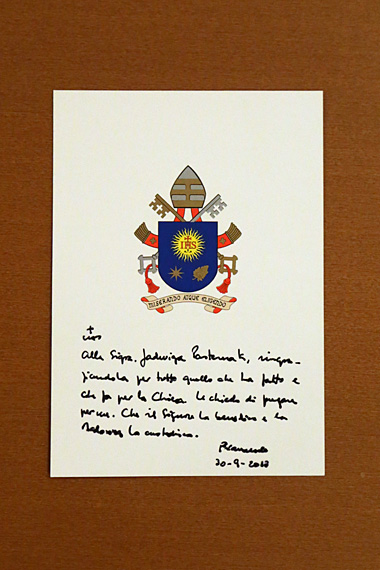 IHS
MISERANDO ATQUE ELIGENDO
Alla Sigra. Jadwiga Pasternak, ringra-
ziandola per tutto quello che ha fatto e
che fa per la Chiesa. Le chiedo di pregare
per me. Che il Signore la benedica e la
Madonna la custodisca.
Francesco
30-9-2013